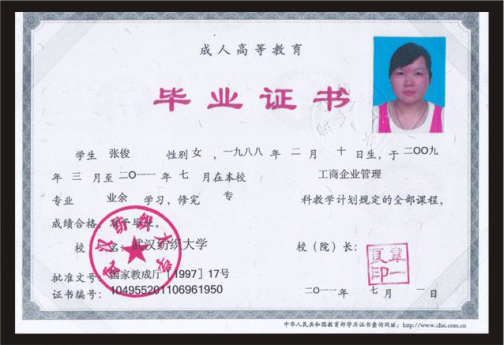 成人高等教育
毕业证书
学生 张俊 性别 女，一九八八年 二 月 十 日生，于 二〇〇九
年 三 月至 二〇一一 年 七 月在本校 工商企业管理
专业 业余 学习，修完 专 科教学计划规定的全部课程，
成绩合格，准予毕业。
校 名：武汉纺织大学 校（院）长：
批准文号：国家教成厅［1997］17号
证书编号：104955201106961950 二〇一一 年 七 月 一 日
武汉纺织大学
中华人民共和国教育部学历证书查询网址：http://www.chsi.com.cn